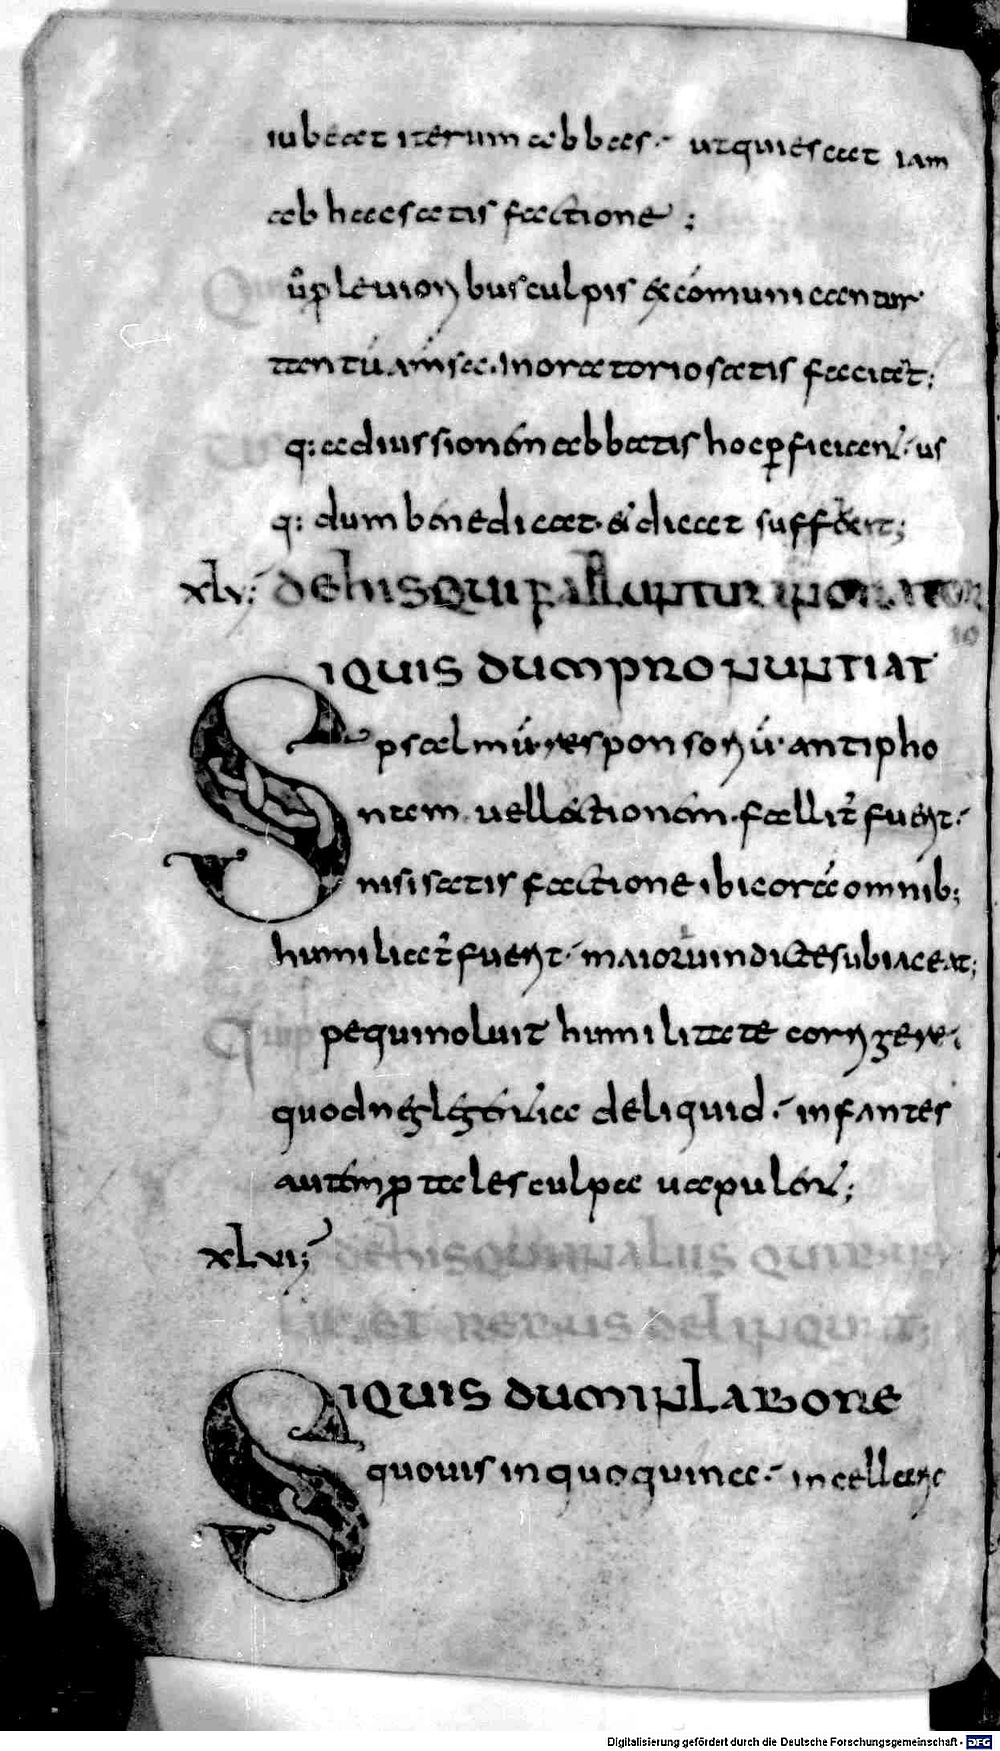 iubeat iterum abbas· ut quiescat iam
ab hac satisfactione ;
Qui ũ ꝑ leuiorybus culpis excōmunicantur
tantū ā msa· In oratorio satis faciat;
usq: ad iussionem abbatis hoc ꝑficiant· us
q: dum benedicat· & dicat sufficit;
xlv; de his qui falluntur in orator
io
Siquis dum pronuntiat
psalmū· responsoriū· antipho
nam uel lectionem· fallitꝰ fuerit·
nisi satisfactione ibi corā omnib;
humiliatꝰ fuerit· maiori uindicte subiaceat;
Quip pe qui noluit humilitate corrigere·
quod neglegentia deliquid· infantes
autem ꝓ tale culpa uapulent;
xlvi; de his qui in aliis quibus
li&et rebus delinquunt;
Siquis dum in labore
quouis in quoquina· in cellario